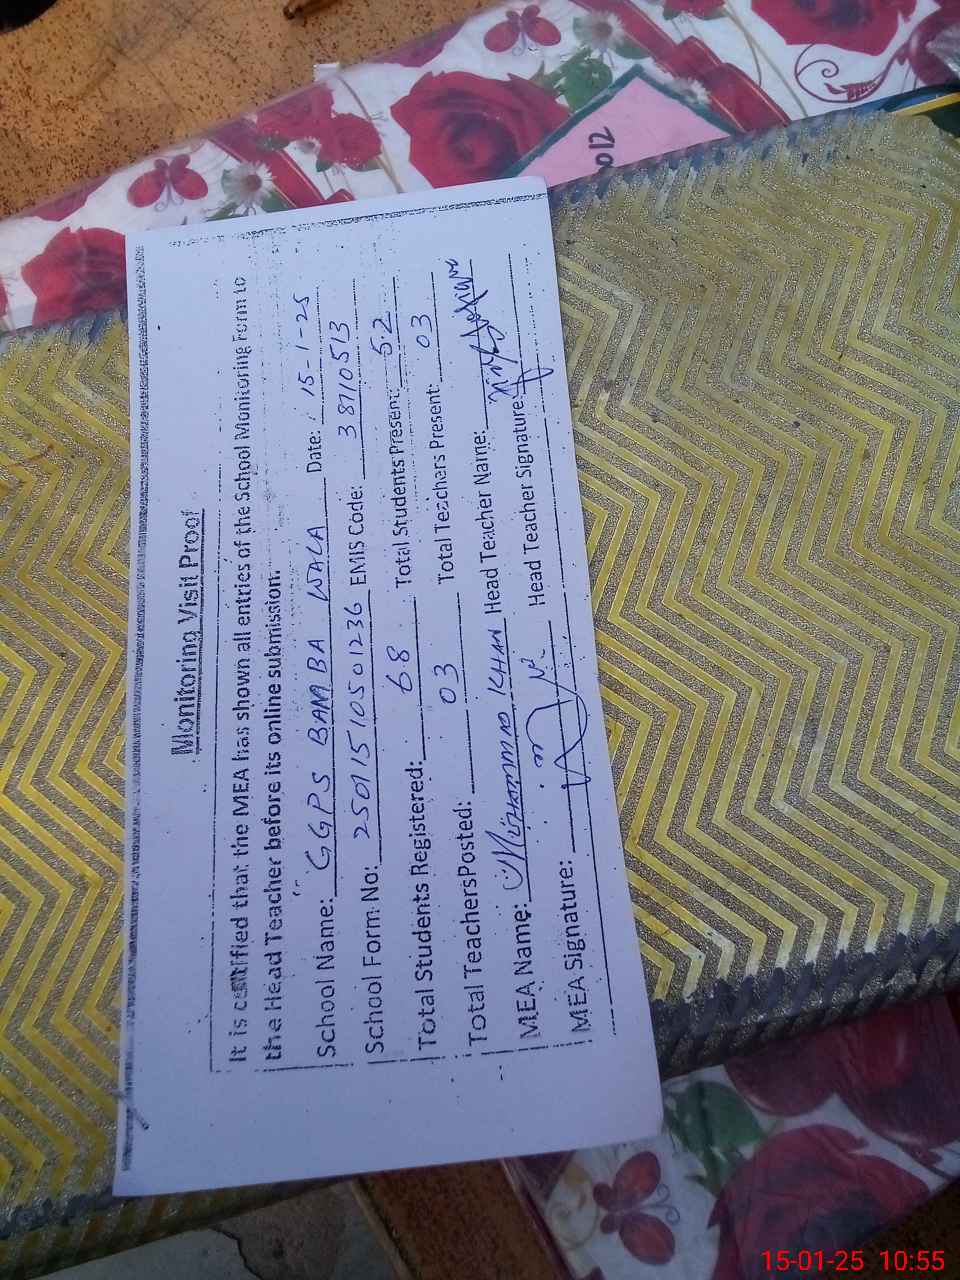 Monitoring Visit Proof
It is certified that the MEA has shown all entries of the School Monitoring Form to
the Head Teacher before its online submission.
School Name: GGPS BAMBA WALA Date: 15-1-25
School Form No: 25011510501236 EMIS Code: 38710513
Total Students Registered: 68 Total Students Present: 52
Total Teachers Posted: 03 Total Teachers Present: 03
MEA Name: MUHAMMAD KHAN Head Teacher Name:
MEA Signature: Head Teacher Signature:
210
15-01-25 10:55